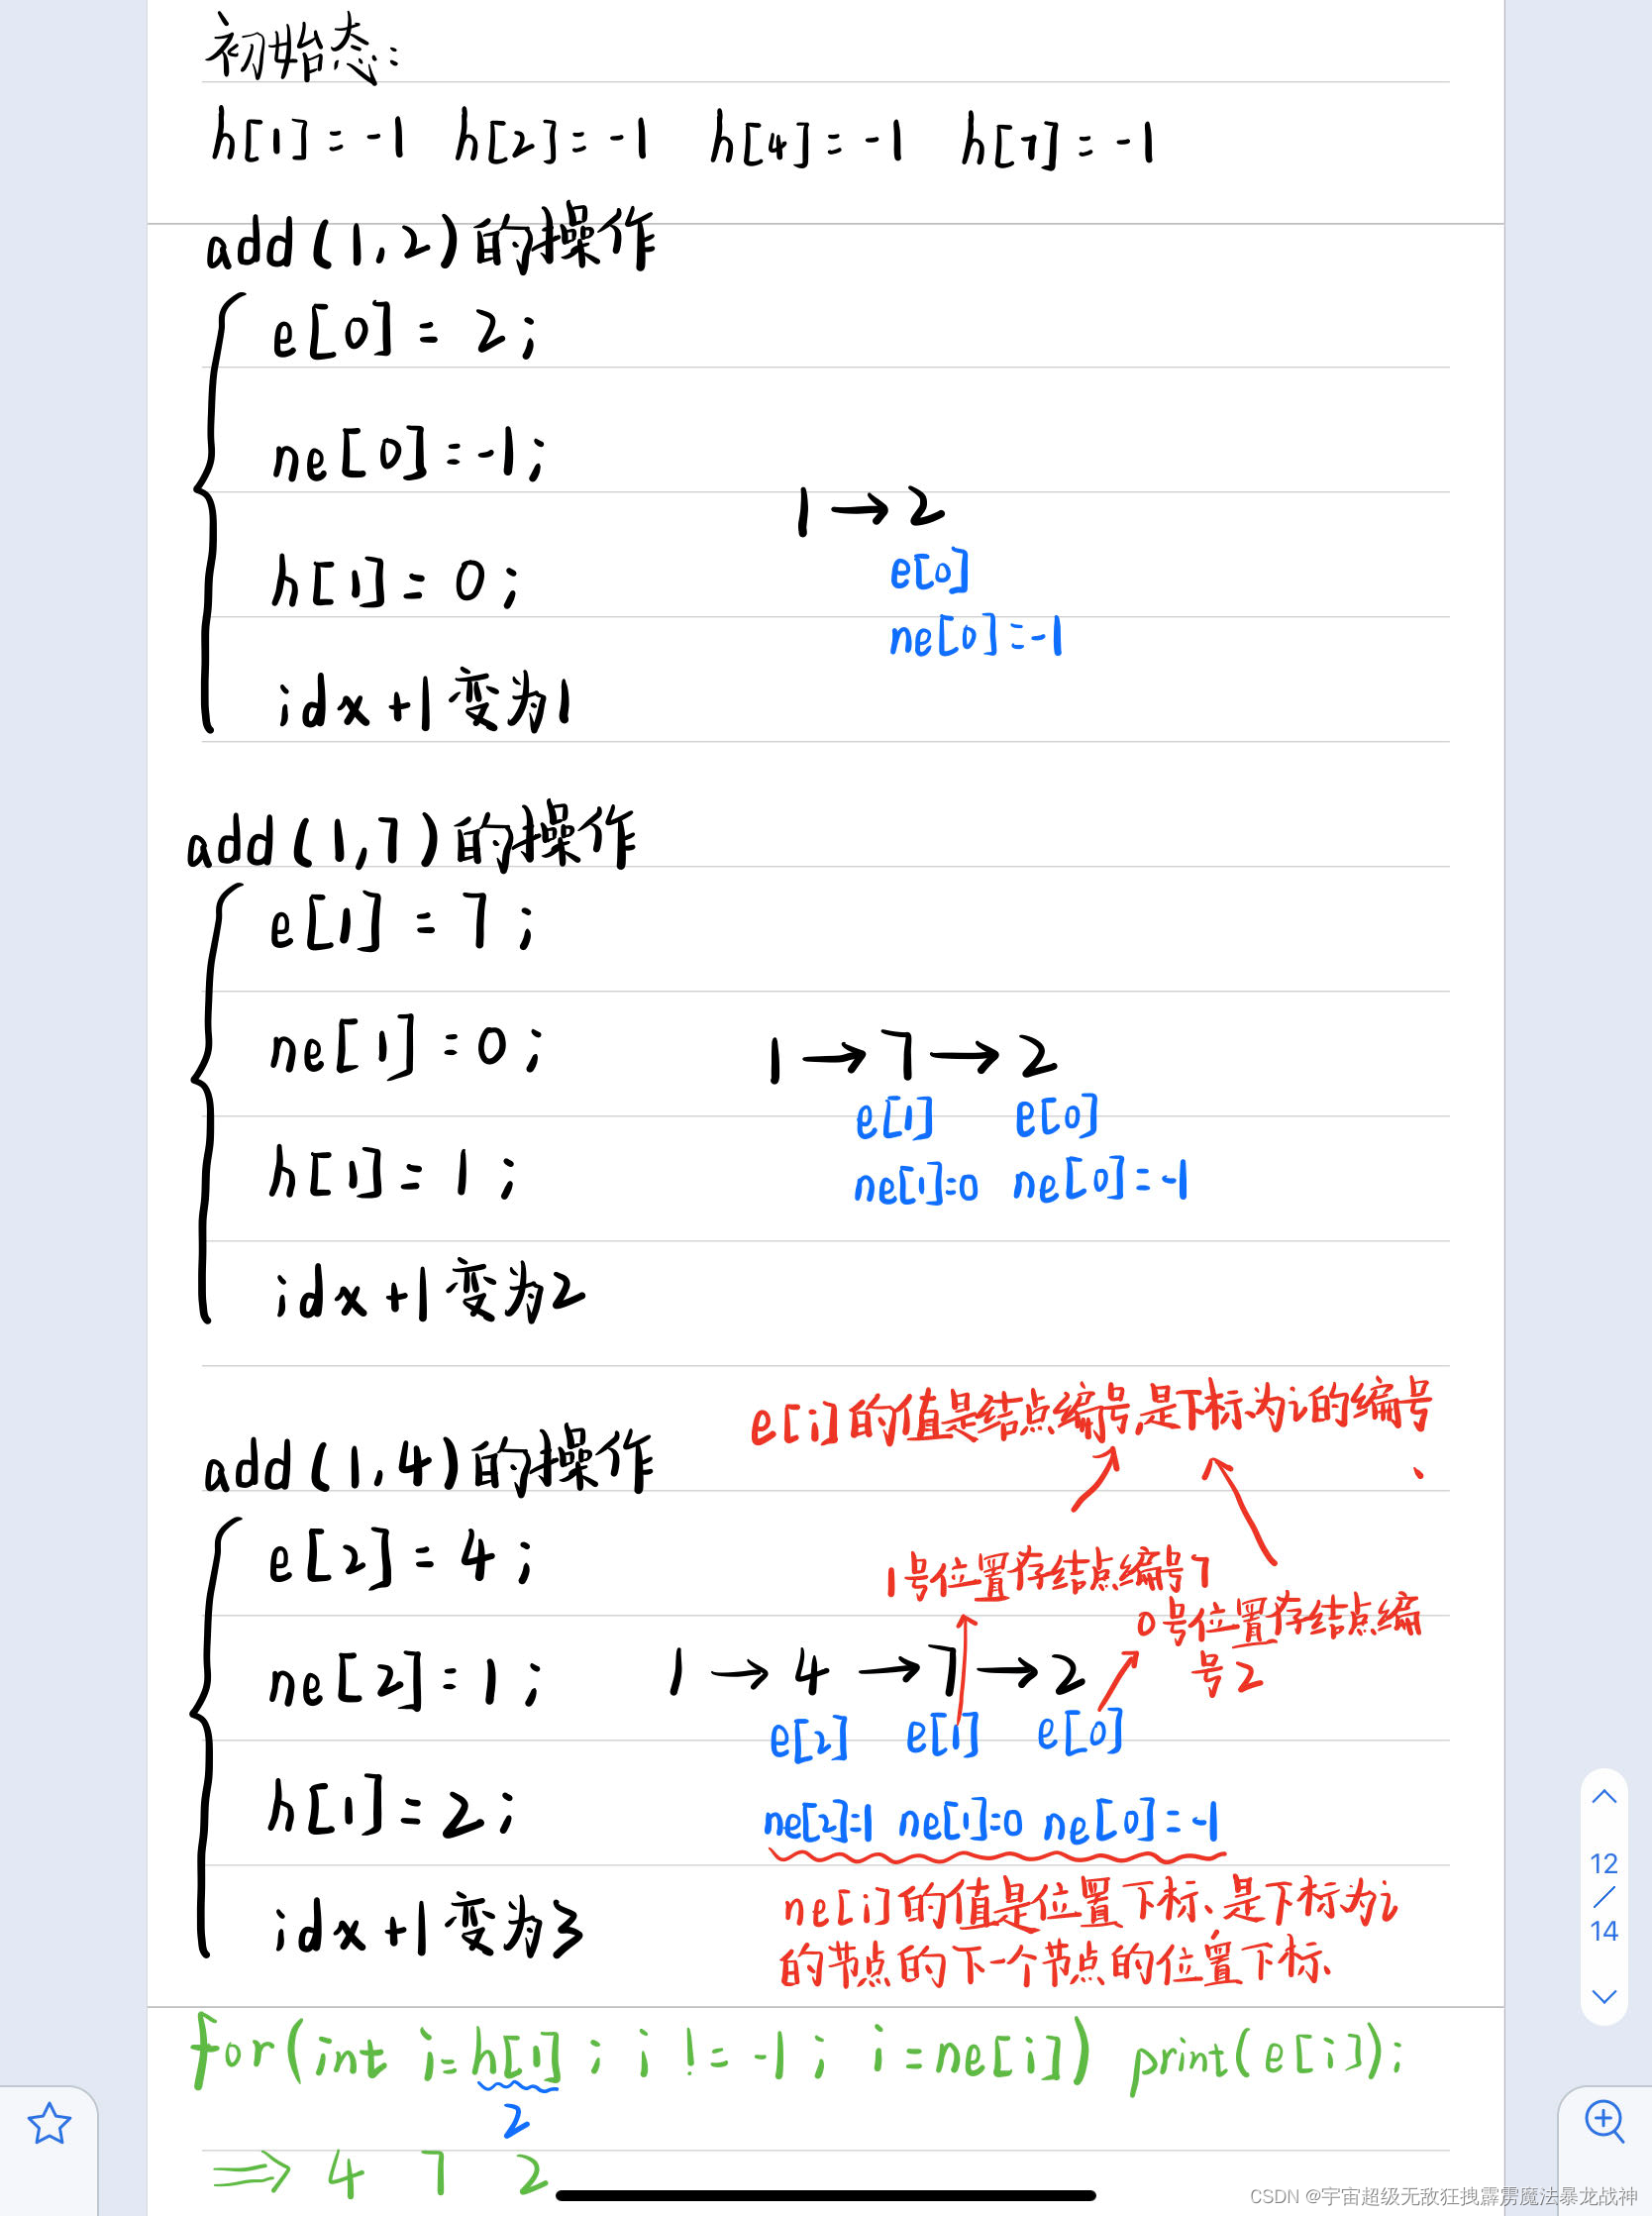 初始态:
h[1]=-1 h[2]=-1 h[4]=-1 h[7]=-1
add(1,2)的操作
e[0]=2;
ne[0]=-1;
1→2
e[0]
h[1]=0;
ne[0]=-1
idx+1变为1
add(1,7)的操作
e[1]=7;
ne[1]=0;
1→7→2
e[1] e[0]
h[1]=1;
ne[1]=0 ne[0]=-1
idx+1变为2
e[i]的值是结点编号,是下标为i的编号、
add(1,4)的操作
e[2]=4;
1号位置存结点编号7
0号位置存结点编
号2
ne[2]=1;
1→4→7→2
e[2] e[1] e[0]
h[1]=2;
ne[2]=1 ne[1]=0 ne[0]=-1
idx+1变为3
ne[i]的值是位置下标、是下标为i
的节点的下一个节点的位置下标、
for(int i=h[1]; i!=-1; i=ne[i]) print(e[i]);
2
⇒ 4 7 2
12
/
14
CSDN @宇宙超级无敌狂拽霹雳魔法暴龙战神